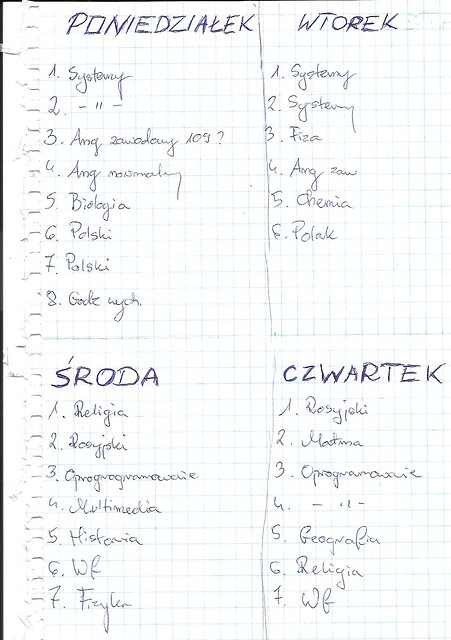 PONIEDZIAŁEK
1. Systemy
2. - " -
3. Ang zawodowy 109?
4. Ang normalny
5. Biologia
6. Polski
7. Polski
8. Godz wych.
WTOREK
1. Systemy
2. Systemy
3. Fiza
4. Ang zaw
5. Chemia
6. Polak
ŚRODA
1. Religia
2. Rosyjski
3. Oprogrogramowanie
4. Multimedia
5. Historia
6. Wf
7. Fizyka
CZWARTEK
1. Rosyjski
2. Matma
3. Oprogramowanie
4. - " -
5. Geografia
6. Religia
7. Wf